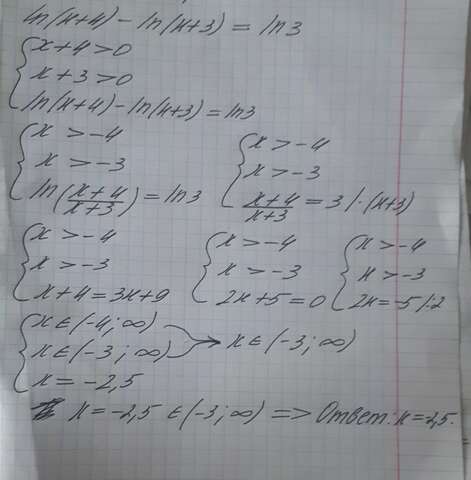 ln(x+4) - ln(x+3) = ln3
x+4>0
x+3>0
ln(x+4)-ln(x+3)=ln3
x > -4
x > -3
ln(x+4/x+3) = ln3
x > -4
x > -3
x+4/x+3 = 3 | ·(x+3)
x > -4
x > -3
x+4=3x+9
x > -4
x > -3
2x+5=0
x > -4
x > -3
2x=-5 |:2
x∈(-4; ∞)
x∈(-3; ∞)
x = -2,5
x∈(-3; ∞)
x = -2,5 ∈(-3; ∞) => Ответ: x=-2,5.